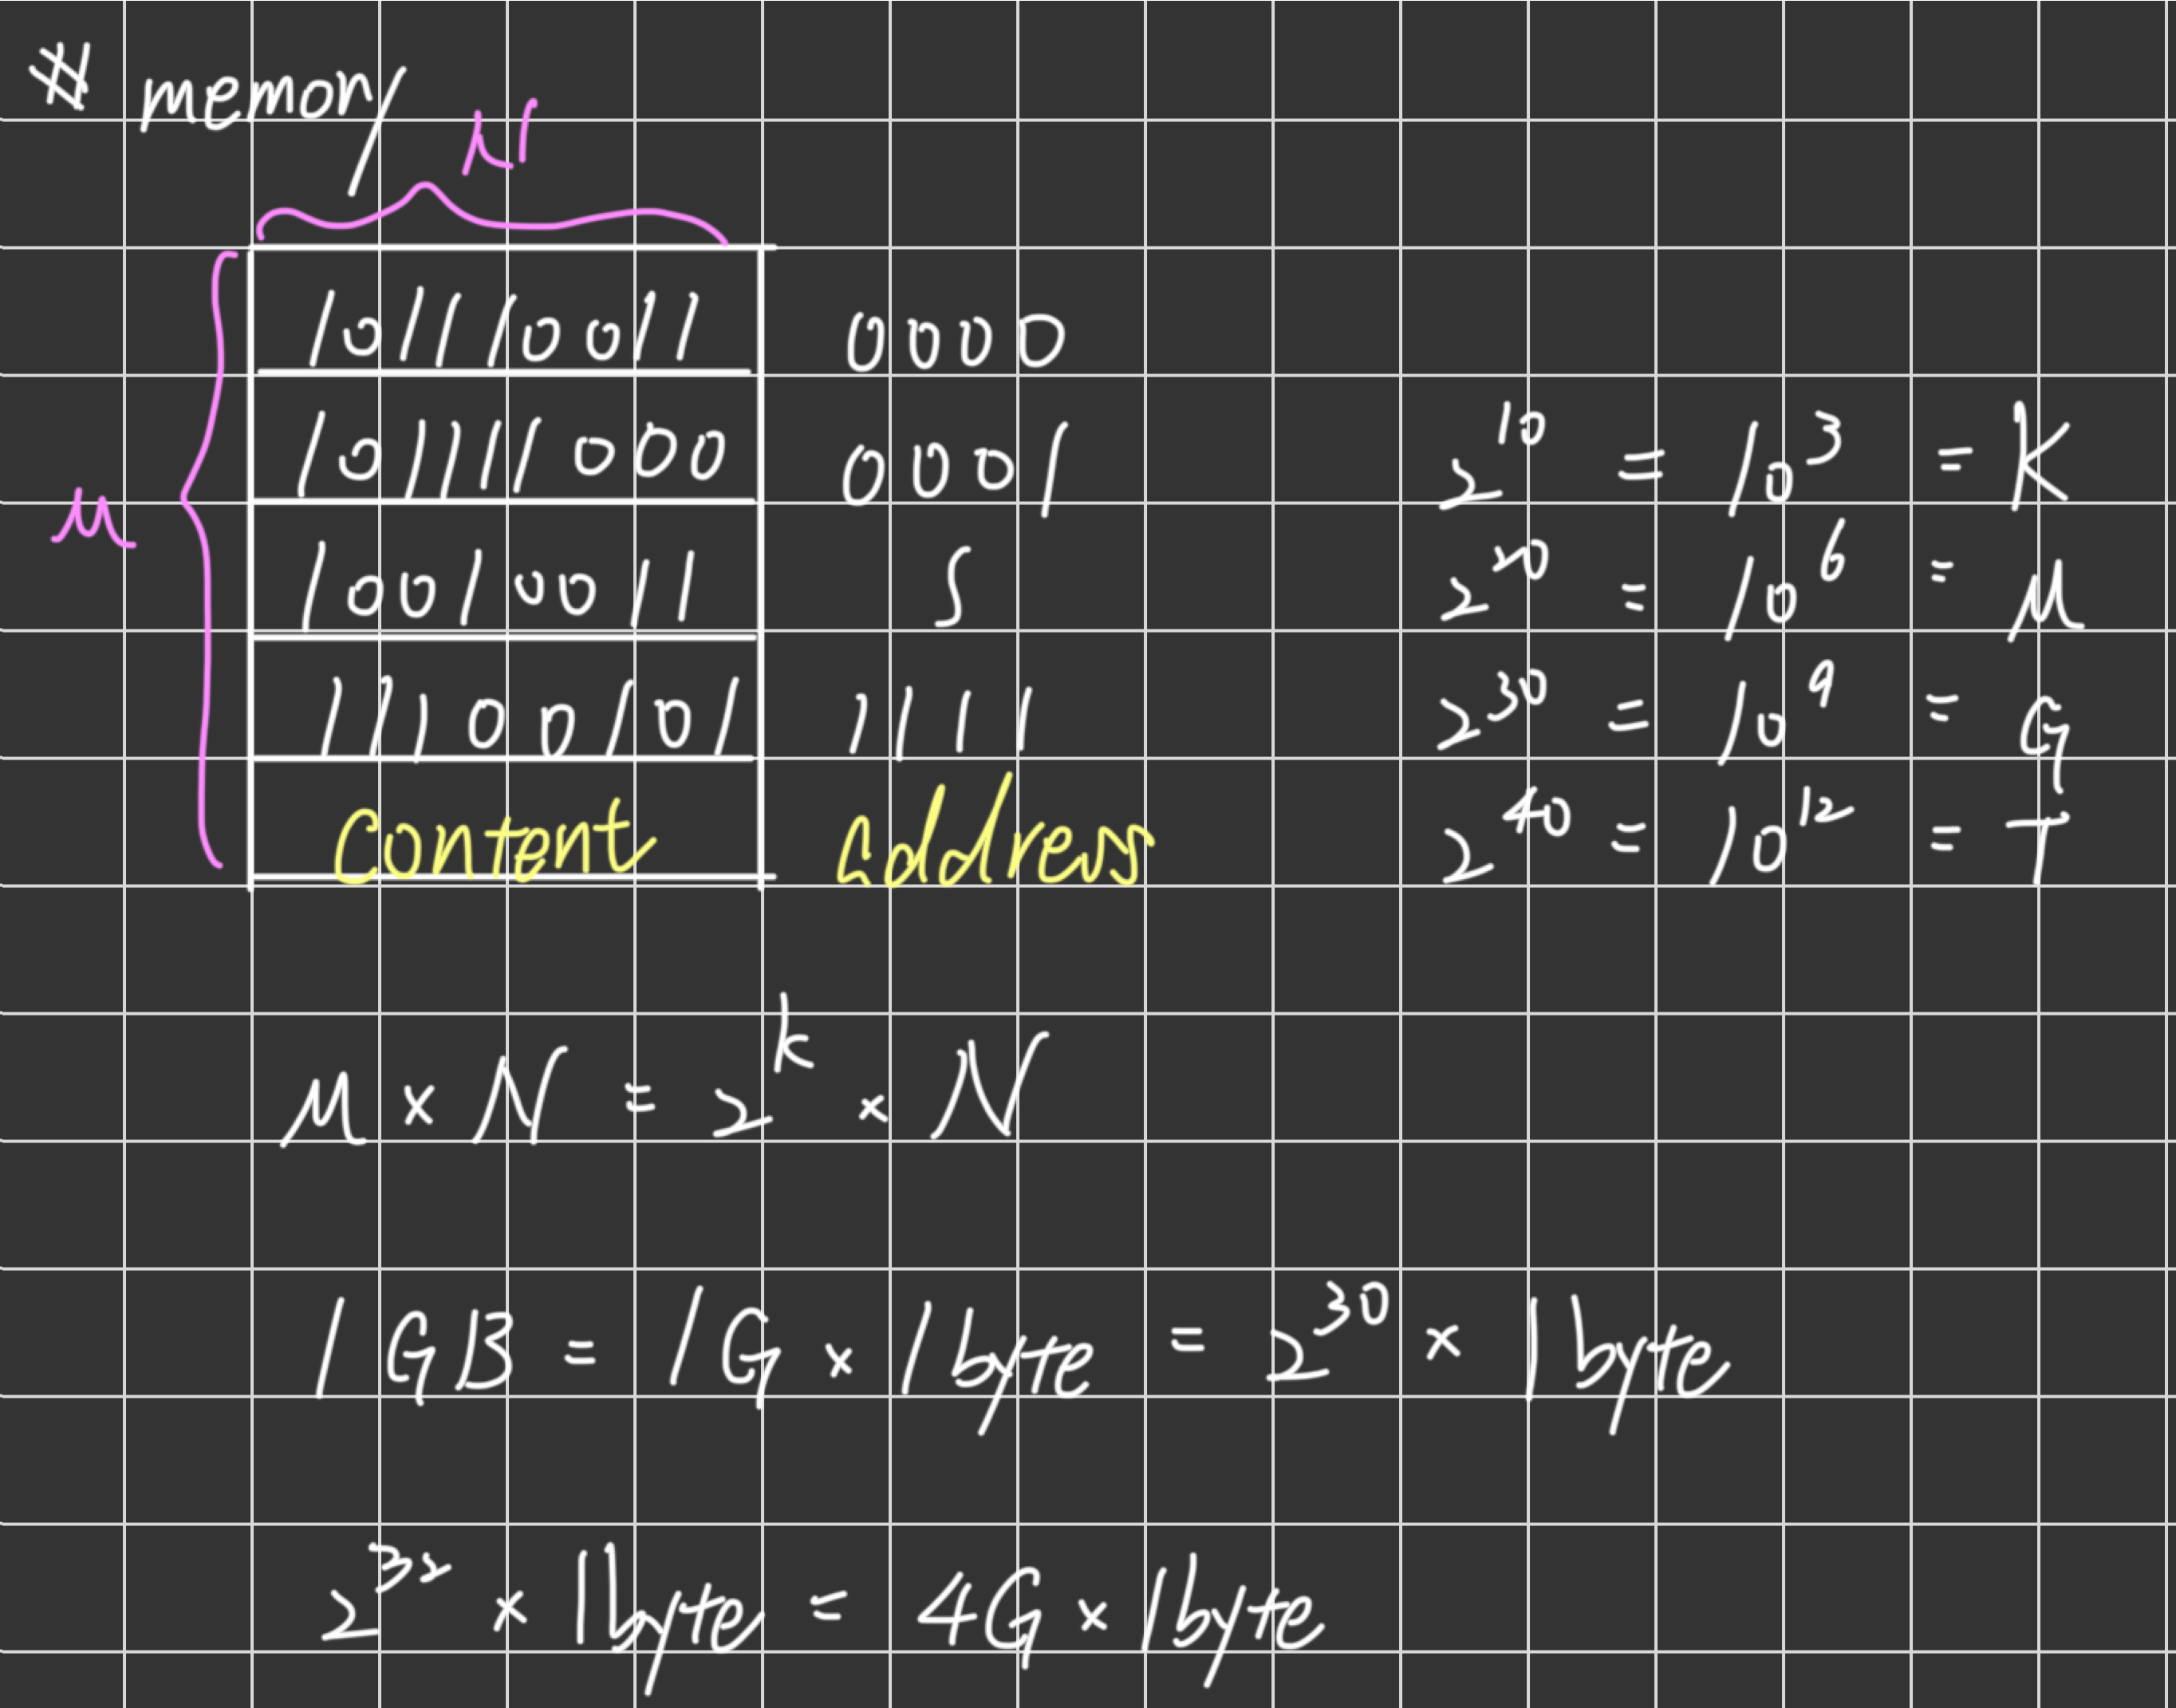 memory
N
101110011 0000
101111000 0001
10010011 ∫
11100101 1111
Content address
M
2^10 = 10^3 = K
2^20 = 10^6 = M
2^30 = 10^9 = G
2^40 = 10^12 = T
M × N = 2^k × N
1GB = 1G × 1byte = 2^30 × 1byte
2^32 × 1byte = 4G × 1byte